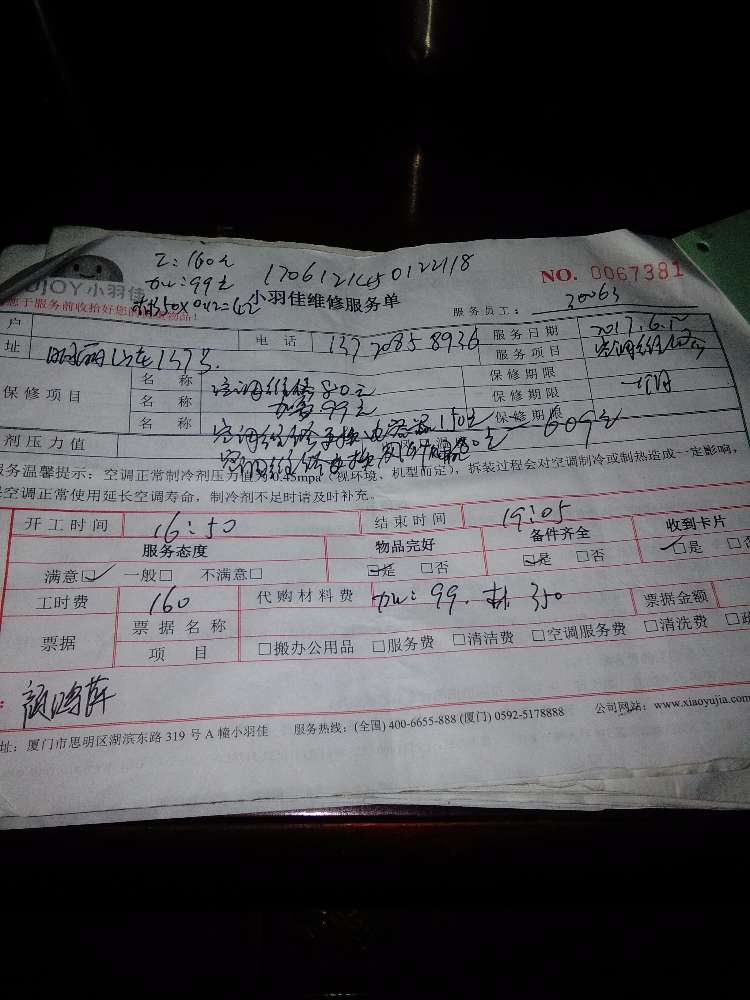 工: 160元
加: 99元
1706121450122118
NO. 0067381
JOY小羽佳
于服务前收拾好您的
小羽佳维修服务单
服务员工: 30063
户
电 话
137 2085 8936
服务日期
2017.6.12
址
1573
服务项目
空调维修
保修项目
名 称
空调维修80元
保修期限
名 称
加氟99元
保修期限
名 称
保修期限
剂压力值
609元
服务温馨提示：空调正常制冷剂压力值为0.45mpa（视环境、机型而定），拆装过程会对空调制冷或制热造成一定影响，
空调正常使用延长空调寿命，制冷剂不足时请及时补充。
开工时间
16:50
结束时间
19:05
服务态度
物品完好
备件齐全
收到卡片
满意□ 一般□ 不满意□
□是 □否
□是 □否
□是 □否
工时费
160
代购材料费
加: 99. 材 350
票据金额
票据
票据名称
项 目
□搬办公用品 □服务费 □清洁费 □空调服务费 □清洗费
址：厦门市思明区湖滨东路 319 号 A 幢小羽佳 服务热线：(全国) 400-6655-888 (厦门) 0592-5178888 公司网站：www.xiaoyujia.com